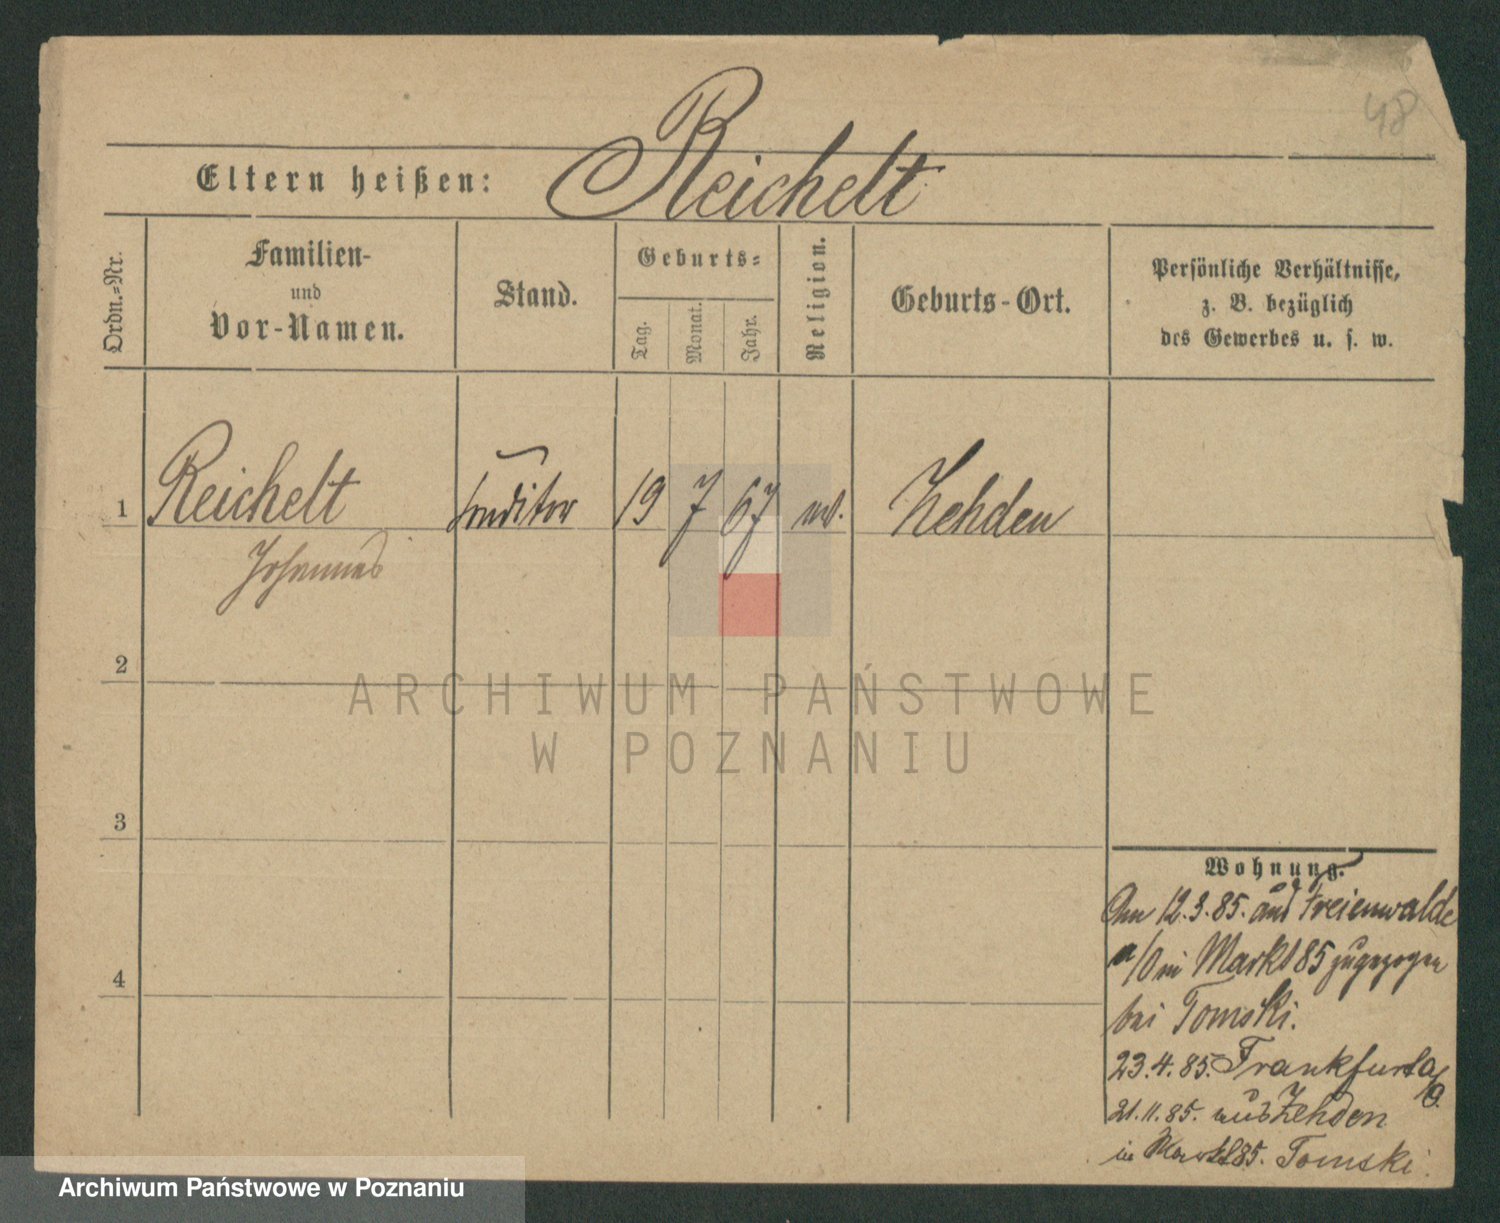 48
Eltern heißen: Reichelt
Ordn.-Nr.
Familien-
und
Vor-Namen.
Stand.
Geburts-
Tag.
Monat.
Jahr.
Religion.
Geburts-Ort.
Persönliche Verhältnisse,
z. B. bezüglich
des Gewerbes u. s. w.
1 Reichelt 19 7 67 Zehden
Johannes
2
3
4
Wohnung.
Am 12.3.85. aus Freienwalde
a/O in Markt 85 zugezogen
bei Tomski.
23.4.85. Frankfurt a/O.
21.11.85. aus Zehden
in Markt 85. Tomski.
ARCHIWUM PAŃSTWOWE
W POZNANIU
Archiwum Państwowe w Poznaniu